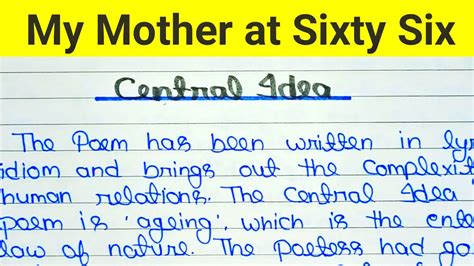 My Mother at Sixty Six
Central Idea
The Poem has been written in lyr
idiom and brings out the Complexit
human relations. The Central Idea
poem is 'ageing', which is the ente
law of nature. The Poetess had go